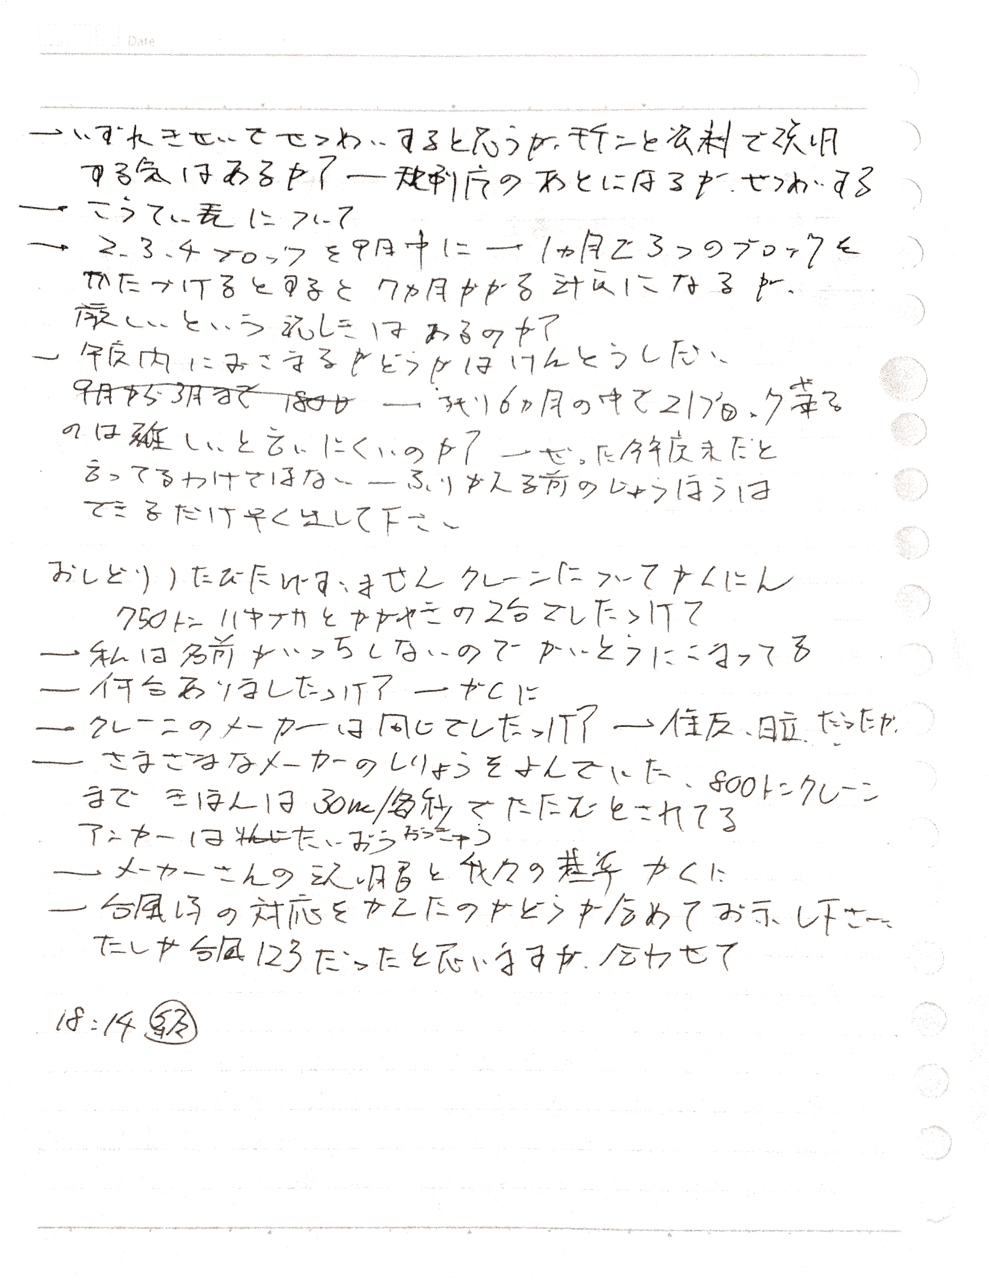 Date
→いずれきせいでせつめいすると思うが、モチンと資料で説明
する気はあるか? — 規制庁のあとになるが、せつめいする
→ こうてい表について
→ 2.3.4ブロックを9月中に — 1ヵ月で3つのブロックを
かたづけるとすると7ヵ月かかる計算になるが、
厳しいという認しきはあるのか?
— 年度内におさまるかどうかはけんとうしたい
9月から3月まで 180日 — 残り6ヵ月の中で21ブロック
のは難しいと言いにくいのか? — ぜったい今年度末だと
言ってるわけではない — ふりかえる前のじょうほうは
できるだけ早く出して下さい
おしどり) たびたびすいません クレーンについてかくにん
750トン ハヤブサとかがやきの2台でしたっけて
— 私は名前がいっちしないのでかいとうにこまってる
— 何台ありましたっけ? — かくに
— クレーンのメーカーは同じでしたっけ? → 住友、日立だったか
— さまざまなメーカーのしりょうをよんでいた、800トンクレーン
まできほんは30m/毎秒でたたむとされてる
アンカーは たいおう おっきゅう
— メーカーさんの説明書と我々の基準かくに
— 台風時の対応をかえたのかどうか含めてお示し下さい
たしか台風12号だったと思いますが、合わせて
18:14 終